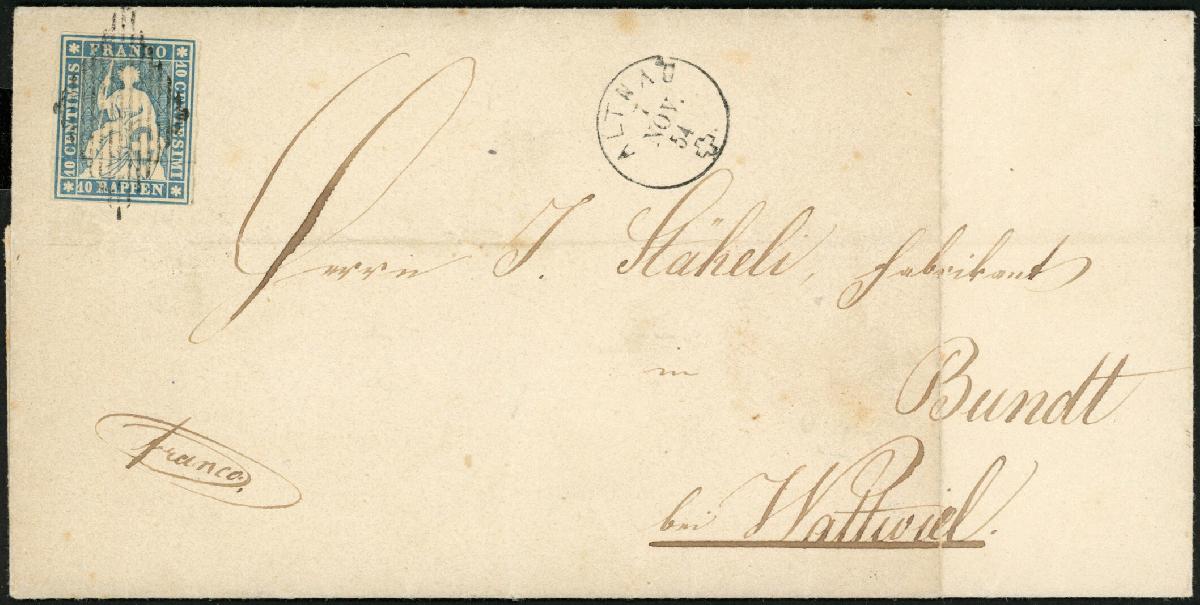 FRANCO
10 CENTIMES
10 CENTESIMI
10 RAPPEN
ALTNAU
7
NOV.
54
Herrn J. Stäheli, Fabrikant
in Bundt
bei Wattwiel.
Franco.